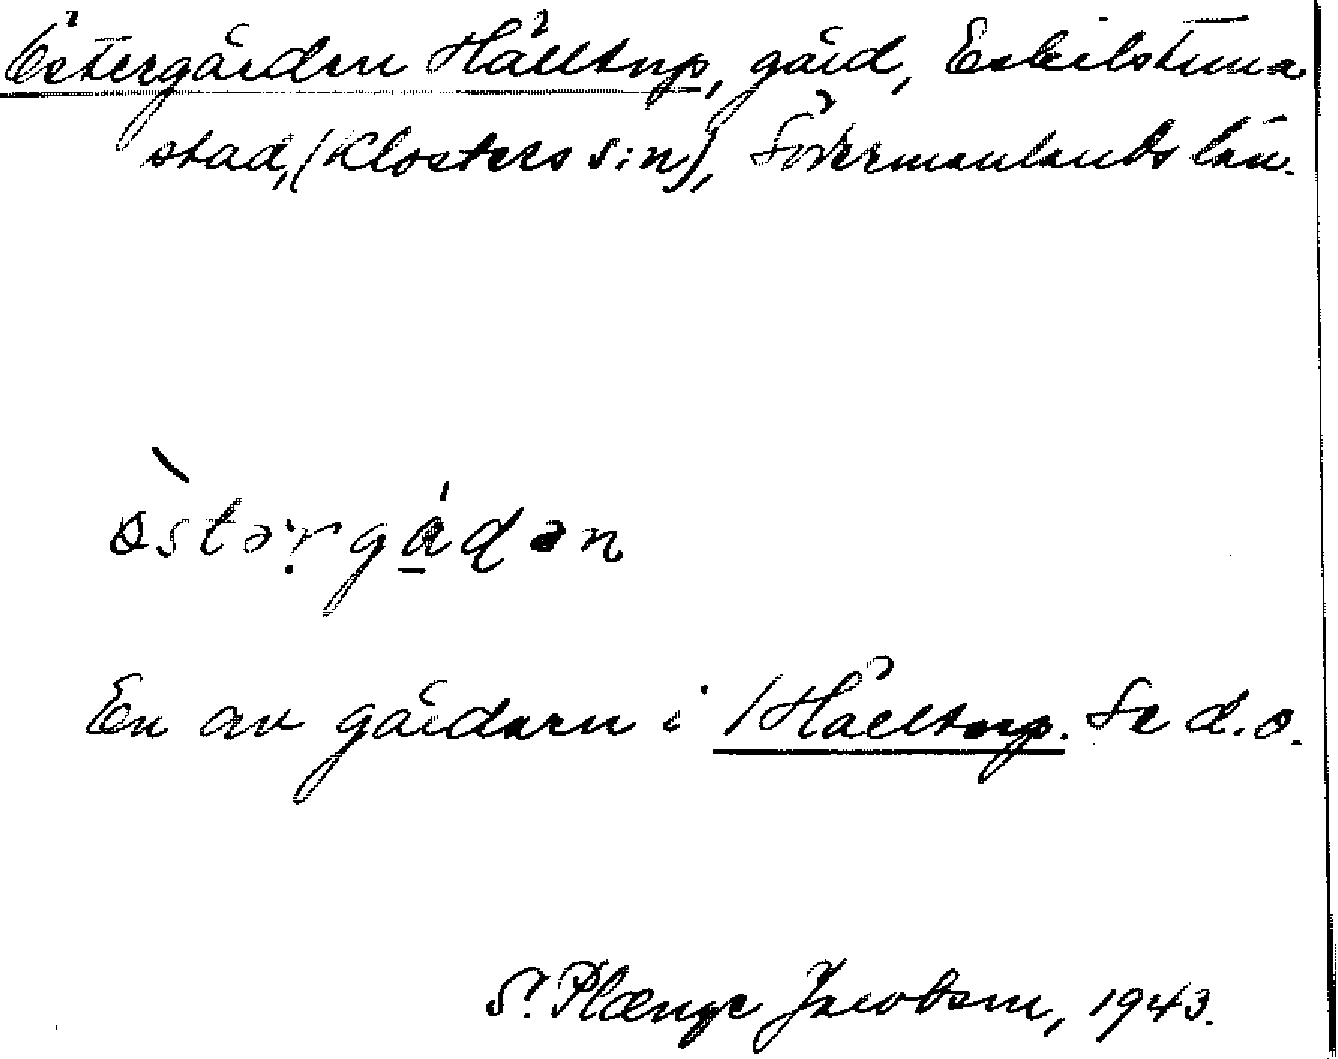 Östergården Hälltorp, gård, Eskilstuna
stad, (Klosters s:n), Södermanlands län.
östərgådən
En av gårdarn i /Hälltorp. Se d.o.
S. Plænge Jacobson, 1943.